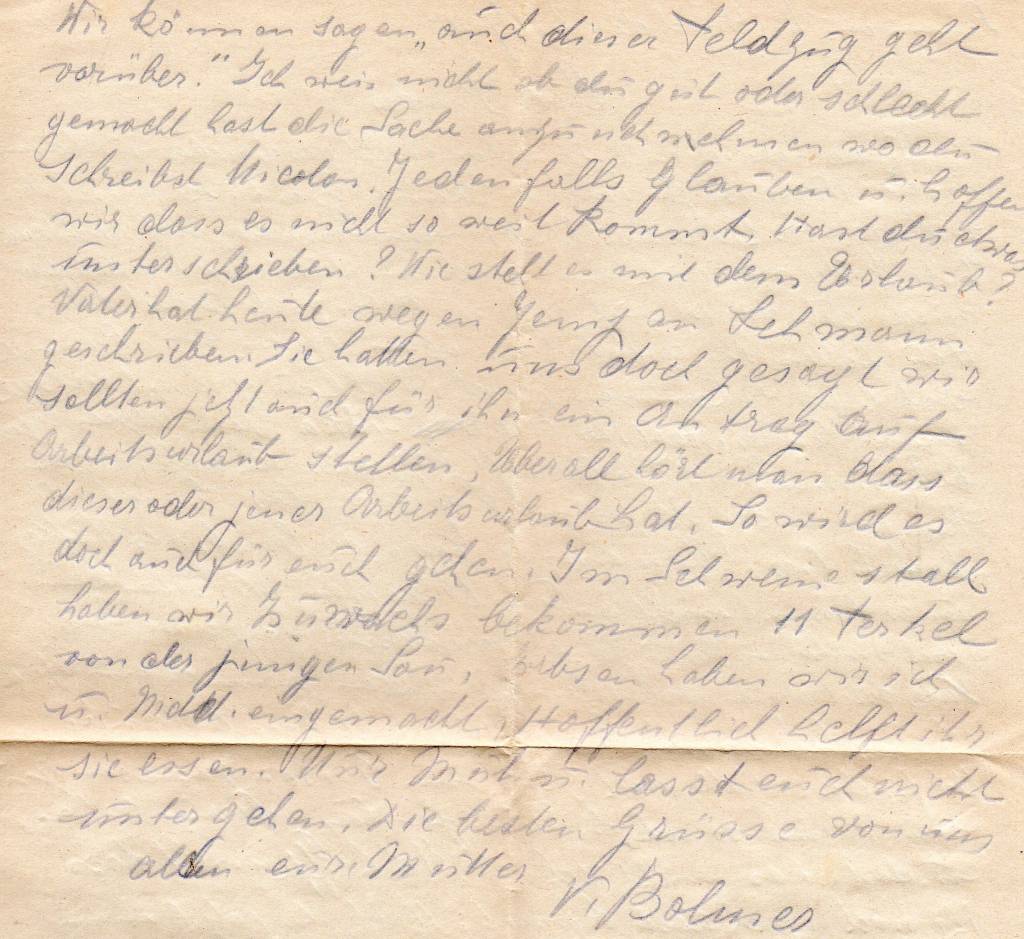 Wir können sagen „auch dieser Feldzug geht
vorüber." Ich weis nicht ob du gut oder schlecht
gemacht hast die Sache anzunehmen wo du
schreibst Nicolas. Jedenfalls Glauben u. hoffen
wir dass es nicht so weit kommt. Hast du etwas
unterschrieben? Wie steht es mit dem Urlaub?
Vater hat heute wegen an Lehmann
geschrieben. Sie hatten uns doch gesagt wir
sollten jetzt auch für ihn ein Antrag auf
Arbeitsurlaub stellen, Überall hört man dass
dieser oder jener Arbeitsurlaub hat. So wird es
doch auch für euch gehen. Im Schweinestall
haben wir Zuwachs bekommen 11 Ferkel
von der jungen Sau, Erbsen haben wir ich
u. eingemacht, Hoffentlich helft ihr
sie essen. Nur Mut u. lasst euch nicht
untergehen. Die besten Grüsse von uns
allen eure Mutter
V. Bohmer